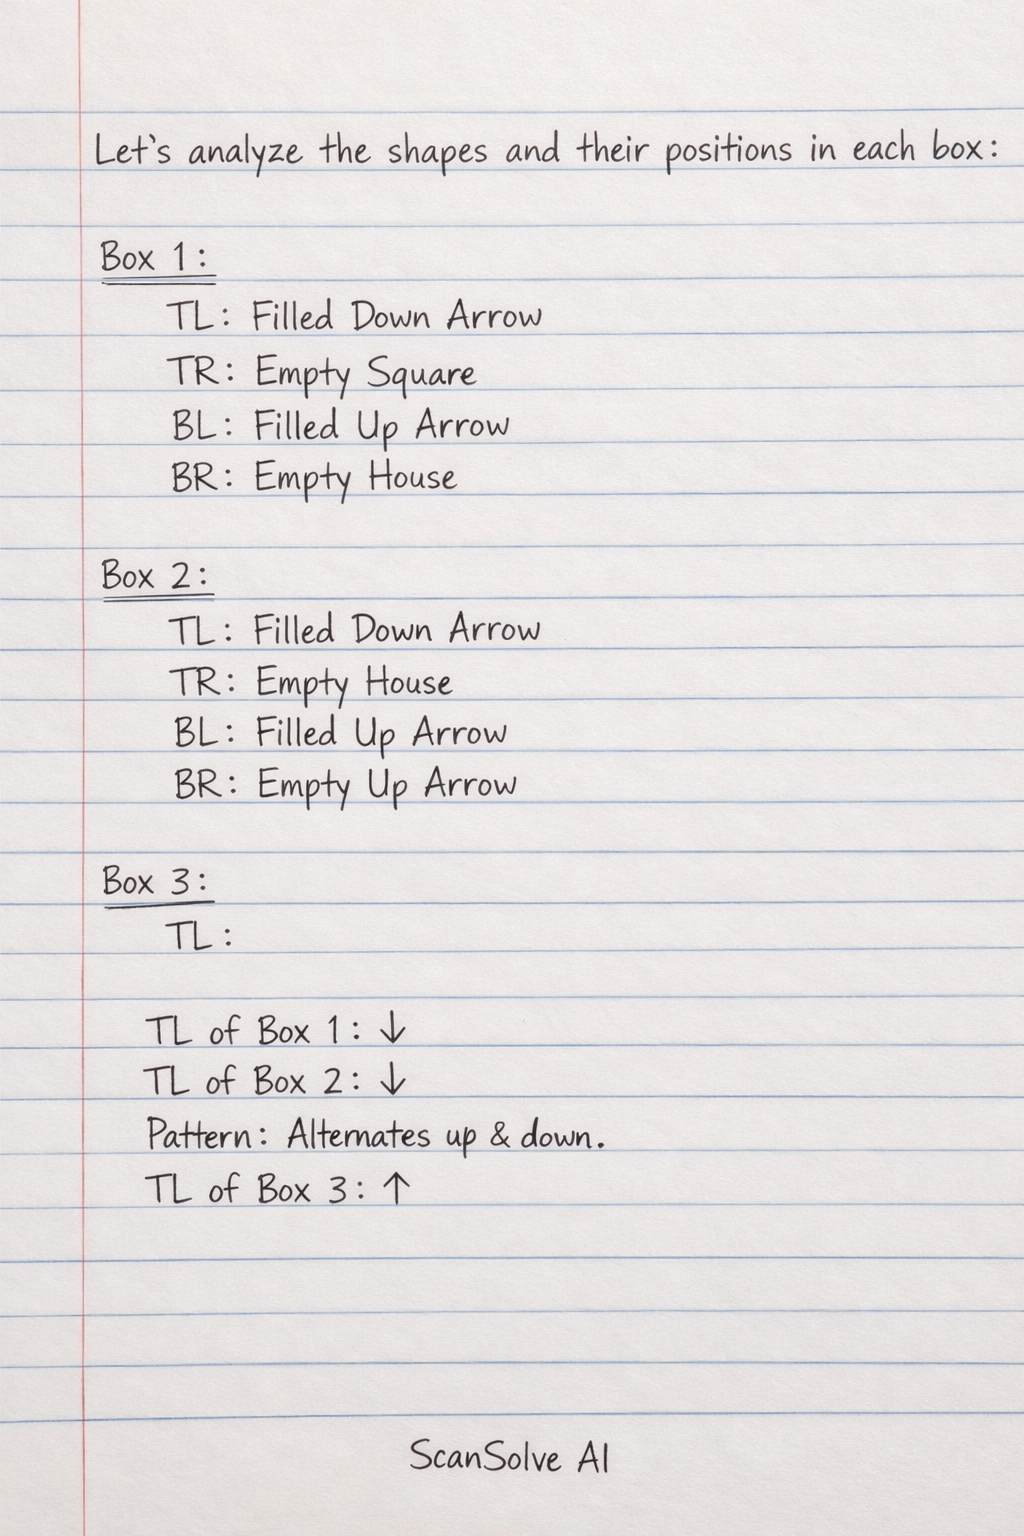 Let's analyze the shapes and their positions in each box:
Box 1:
TL: Filled Down Arrow
TR: Empty Square
BL: Filled Up Arrow
BR: Empty House
Box 2:
TL: Filled Down Arrow
TR: Empty House
BL: Filled Up Arrow
BR: Empty Up Arrow
Box 3:
TL:
TL of Box 1: ↓
TL of Box 2: ↓
Pattern: Alternates up & down.
TL of Box 3: ↑
ScanSolve AI